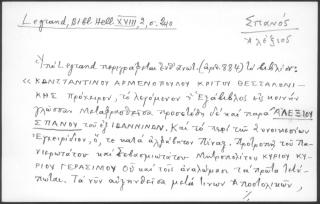 Legrand, Bibl. Hell. XVIII, 2, σ. 240
Σπανός
Ἀλέξιος
Ὑπὸ Legrand περιγράφεται ἐνθ' ἀνωτ. (ἀριθ. 884) τὸ βιβλίον:
« ΚΩΝΣΤΑΝΤΙΝΟΥ ΑΡΜΕΝΟΠΟΥΛΟΥ ΚΡΙΤΟΥ ΘΕΣΣΑΛΟΝΙ-
ΚΗΣ πρόχειρον, τὸ λεγόμενον Ἑξάβιβλος εἰς κοινὴν
γλῶσσαν μεταφρασθεῖσα προσετέθη δὲ καὶ παρὰ ΑΛΕΞΙΟΥ
ΣΠΑΝΟΥ τοῦ ἐξ ΙΩΑΝΝΙΝΩΝ. Καὶ τὸ περὶ τῶν συνοικεσίων
Ἐγχειρίδιον, ὅ, τε κατὰ ἀλφάβητον Πίναξ. Προτροπῇ τοῦ Πα-
νιερωτάτου καὶ Σεβασμιωτάτου Μητροπολίτου ΚΥΡΙΟΥ ΚΥΡΙΟΥ
ΓΕΡΑΣΙΜΟΥ Οὗ καὶ τοῖς ἀναλώμασι τὰ πρῶτα τετύ-
πωται. Τὰ νῦν αὐξηνθεῖσα μετά τινων Ἀποστολικῶν,